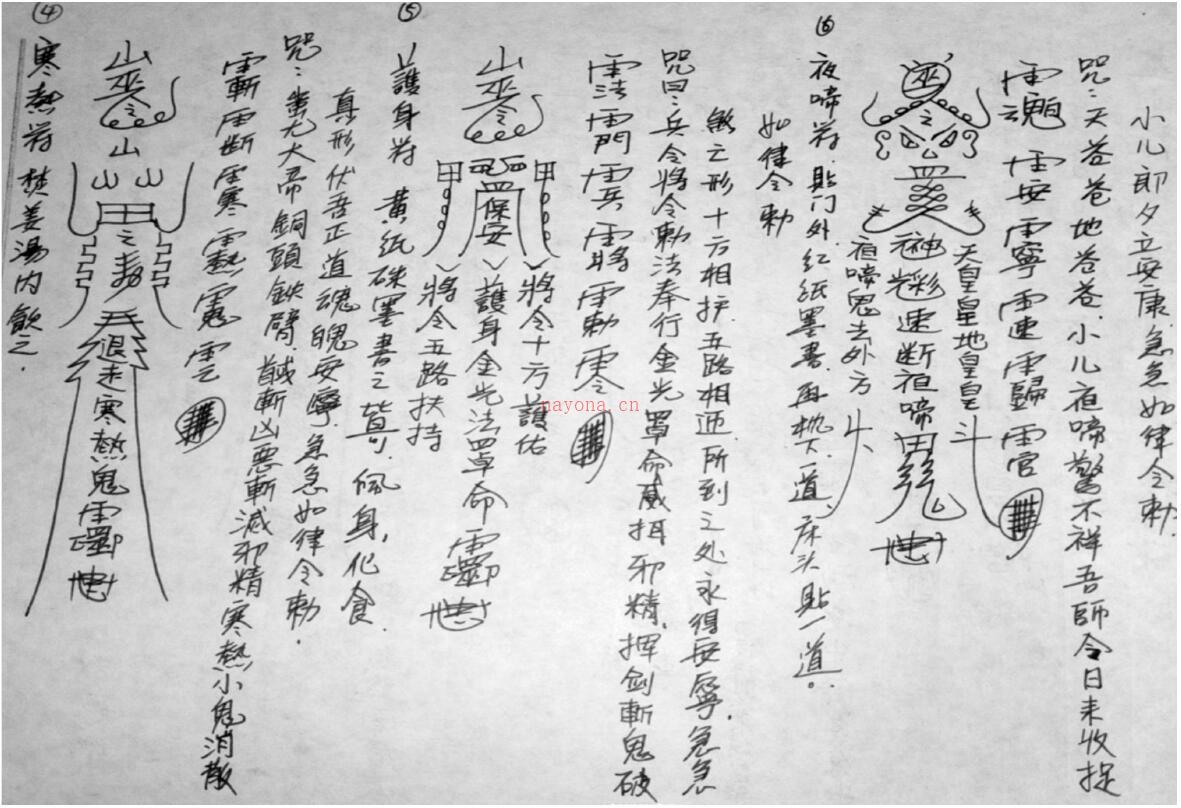 ④
寒熱符 焚姜湯内飲之.
山
退去寒熱鬼
咒:蚩尤大帝銅頭鉄臂.鹹斬凶惡斬滅邪精寒熱小鬼消散
真形伏吾正道魂魄安寧.急急如律令勅.
⑤
護身符 黃紙硃墨書之皆可.佩身,化食.
保安
將令五路扶持
護身金光法罩命
將令十方護佑
咒曰:兵令將令勅法奉行金光罩命威押邪精,揮剑斬鬼破
煞之形十方相护.五路相迊.所到之处永得安寧.急急
如律令勅
⑥
夜啼符.貼门外.红纸墨書.再枕下一道,床头貼一道。
夜啼鬼去外方
速断夜啼
天皇皇地皇皇
咒:天苍苍地苍苍.小儿夜啼驚不祥吾師今日来收捉
小儿郎夕立安康.急急如律令勅.
nayona.cn